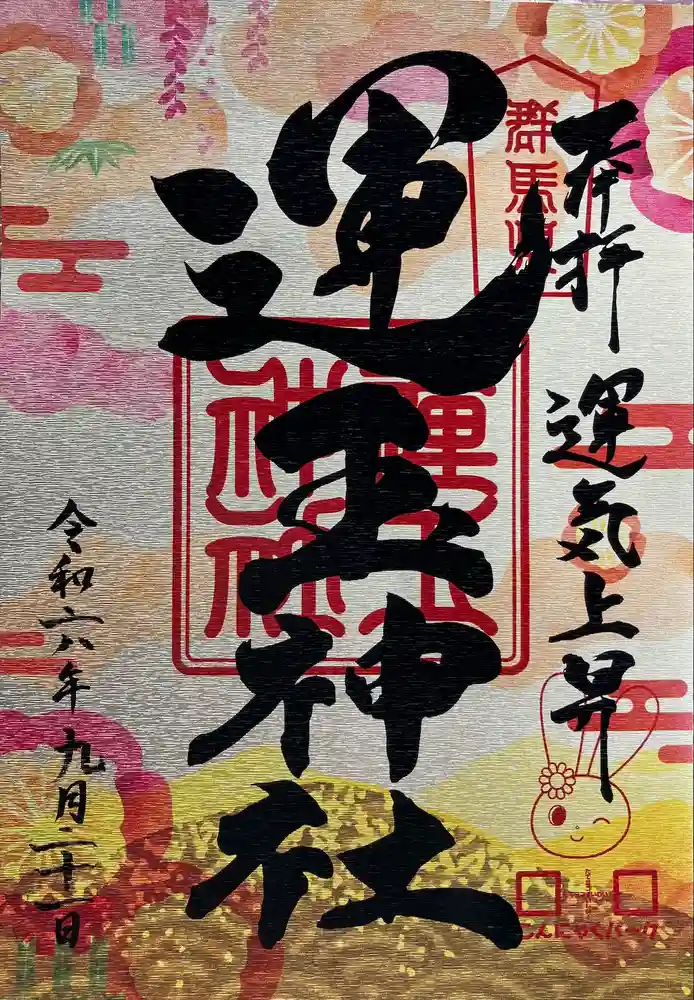 奉拝 運気上昇
群馬県
運玉神社
運玉神社
令和六年九月二十一日
こんにゃくパーク